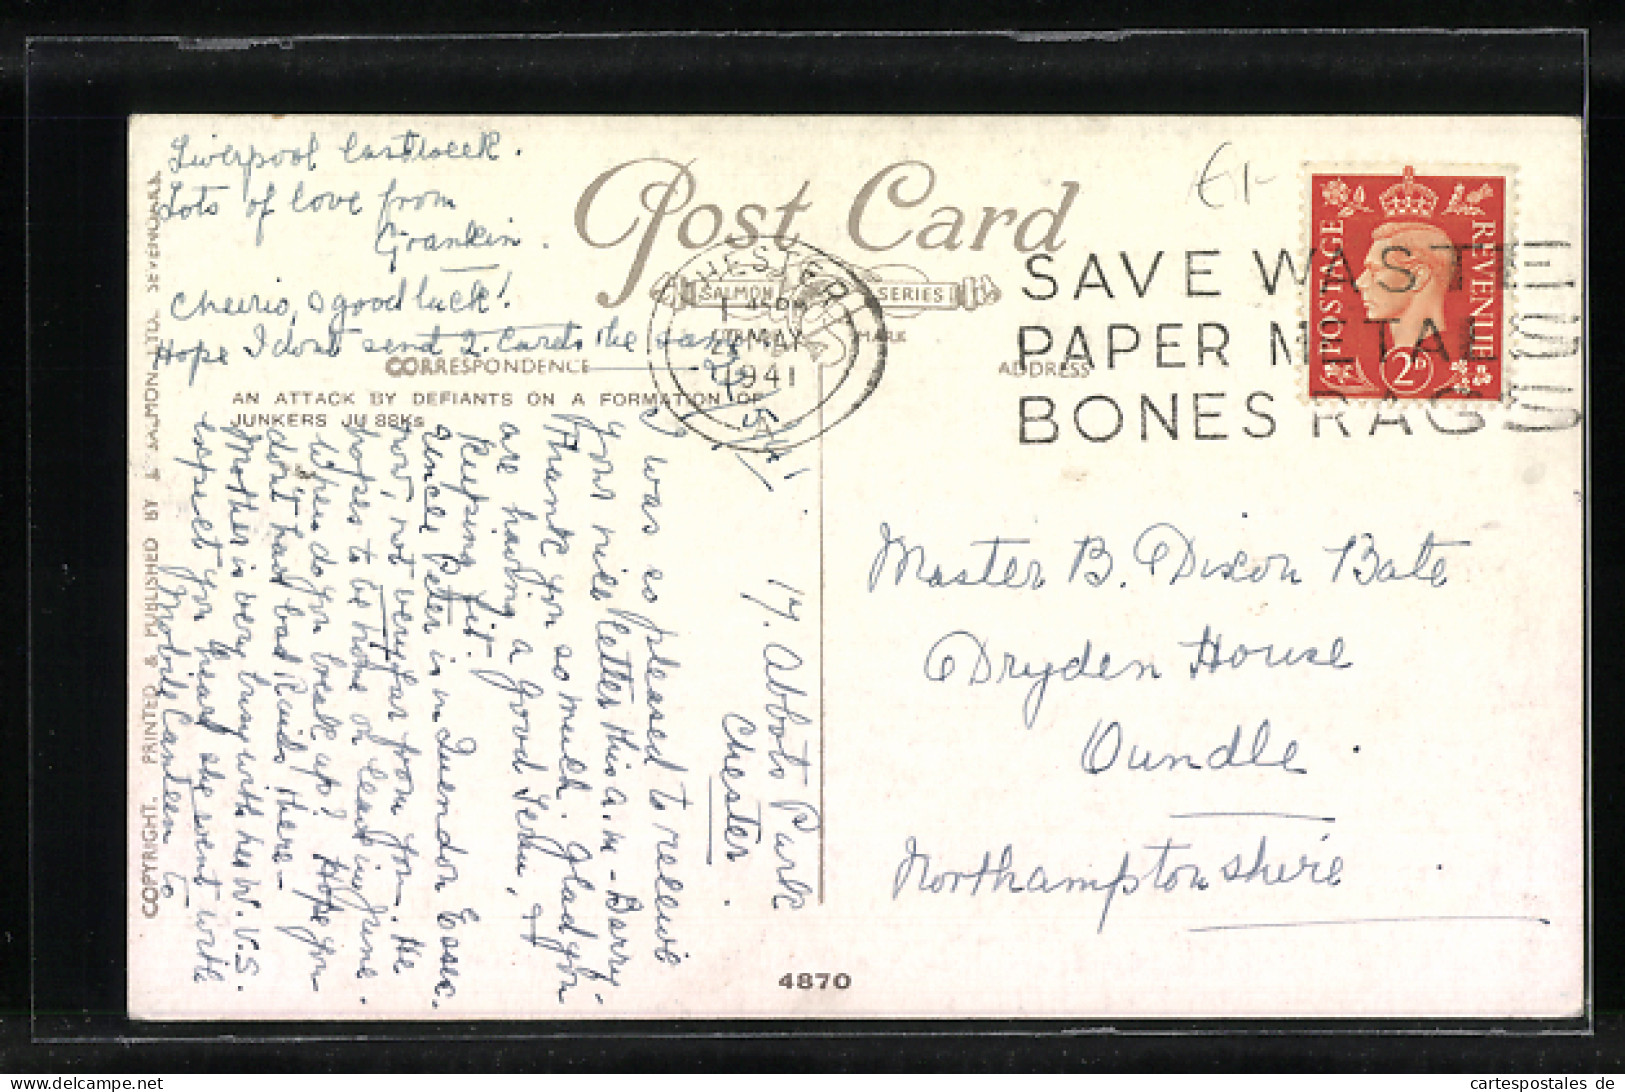 Liverpool last week.
Lots of love from
Grankin.
Cheerio, & good luck!
Hope I don't send 2. Cards the same
Post Card
SALMON SERIES
TRADE MARK
CORRESPONDENCE
ADDRESS
AN ATTACK BY DEFIANTS ON A FORMATION OF
JUNKERS JU 88Ks
£1-
POSTAGE REVENUE
2D
CHESTER
MAY
1941
SAVE WASTE
PAPER METAL
BONES RAGS
17. Abbots Park
Chester.
I was so pleased to receive
your nice letter this a.m - Barry
thank you so much. Glad you
are having a good Term, &
keeping fit.
Uncle Peter is in Quendon Essex.
now, not very far from you. He
hopes to be home on leave in June.
When do you break up? Hope you
don't have bad Raids there -
Mother is very busy with her W.V.S.
expect you heard she went with
Mobile Canteen to
Master B. Dixon Bate
Dryden House
Oundle.
Northamptonshire
COPYRIGHT. PRINTED & PUBLISHED BY J. SALMON LTD. SEVENOAKS
4870
Delcampe.net
cartespostales de